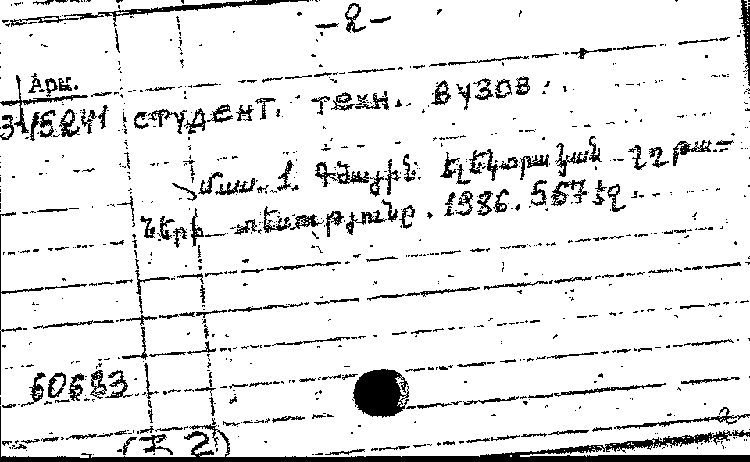 -2-
Арм.
3-15241 студент. техн. вузов.
Մաս. 1. Գծային էլեկտրական շղթա-
ների տեսությունը. 1986. 567 էջ.
60683
(7.2)
2